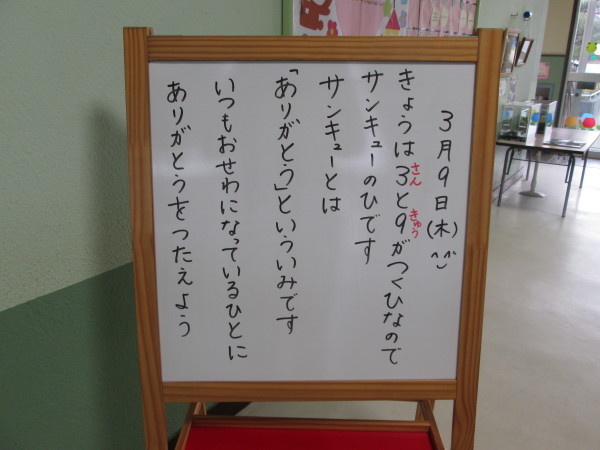 3月9日(木)
きょうは3と9がつくひなので
さん
きゅう
サンキューのひです
サンキューとは
「ありがとう」といういみです
いつもおせわになっているひとに
ありがとうをつたえよう